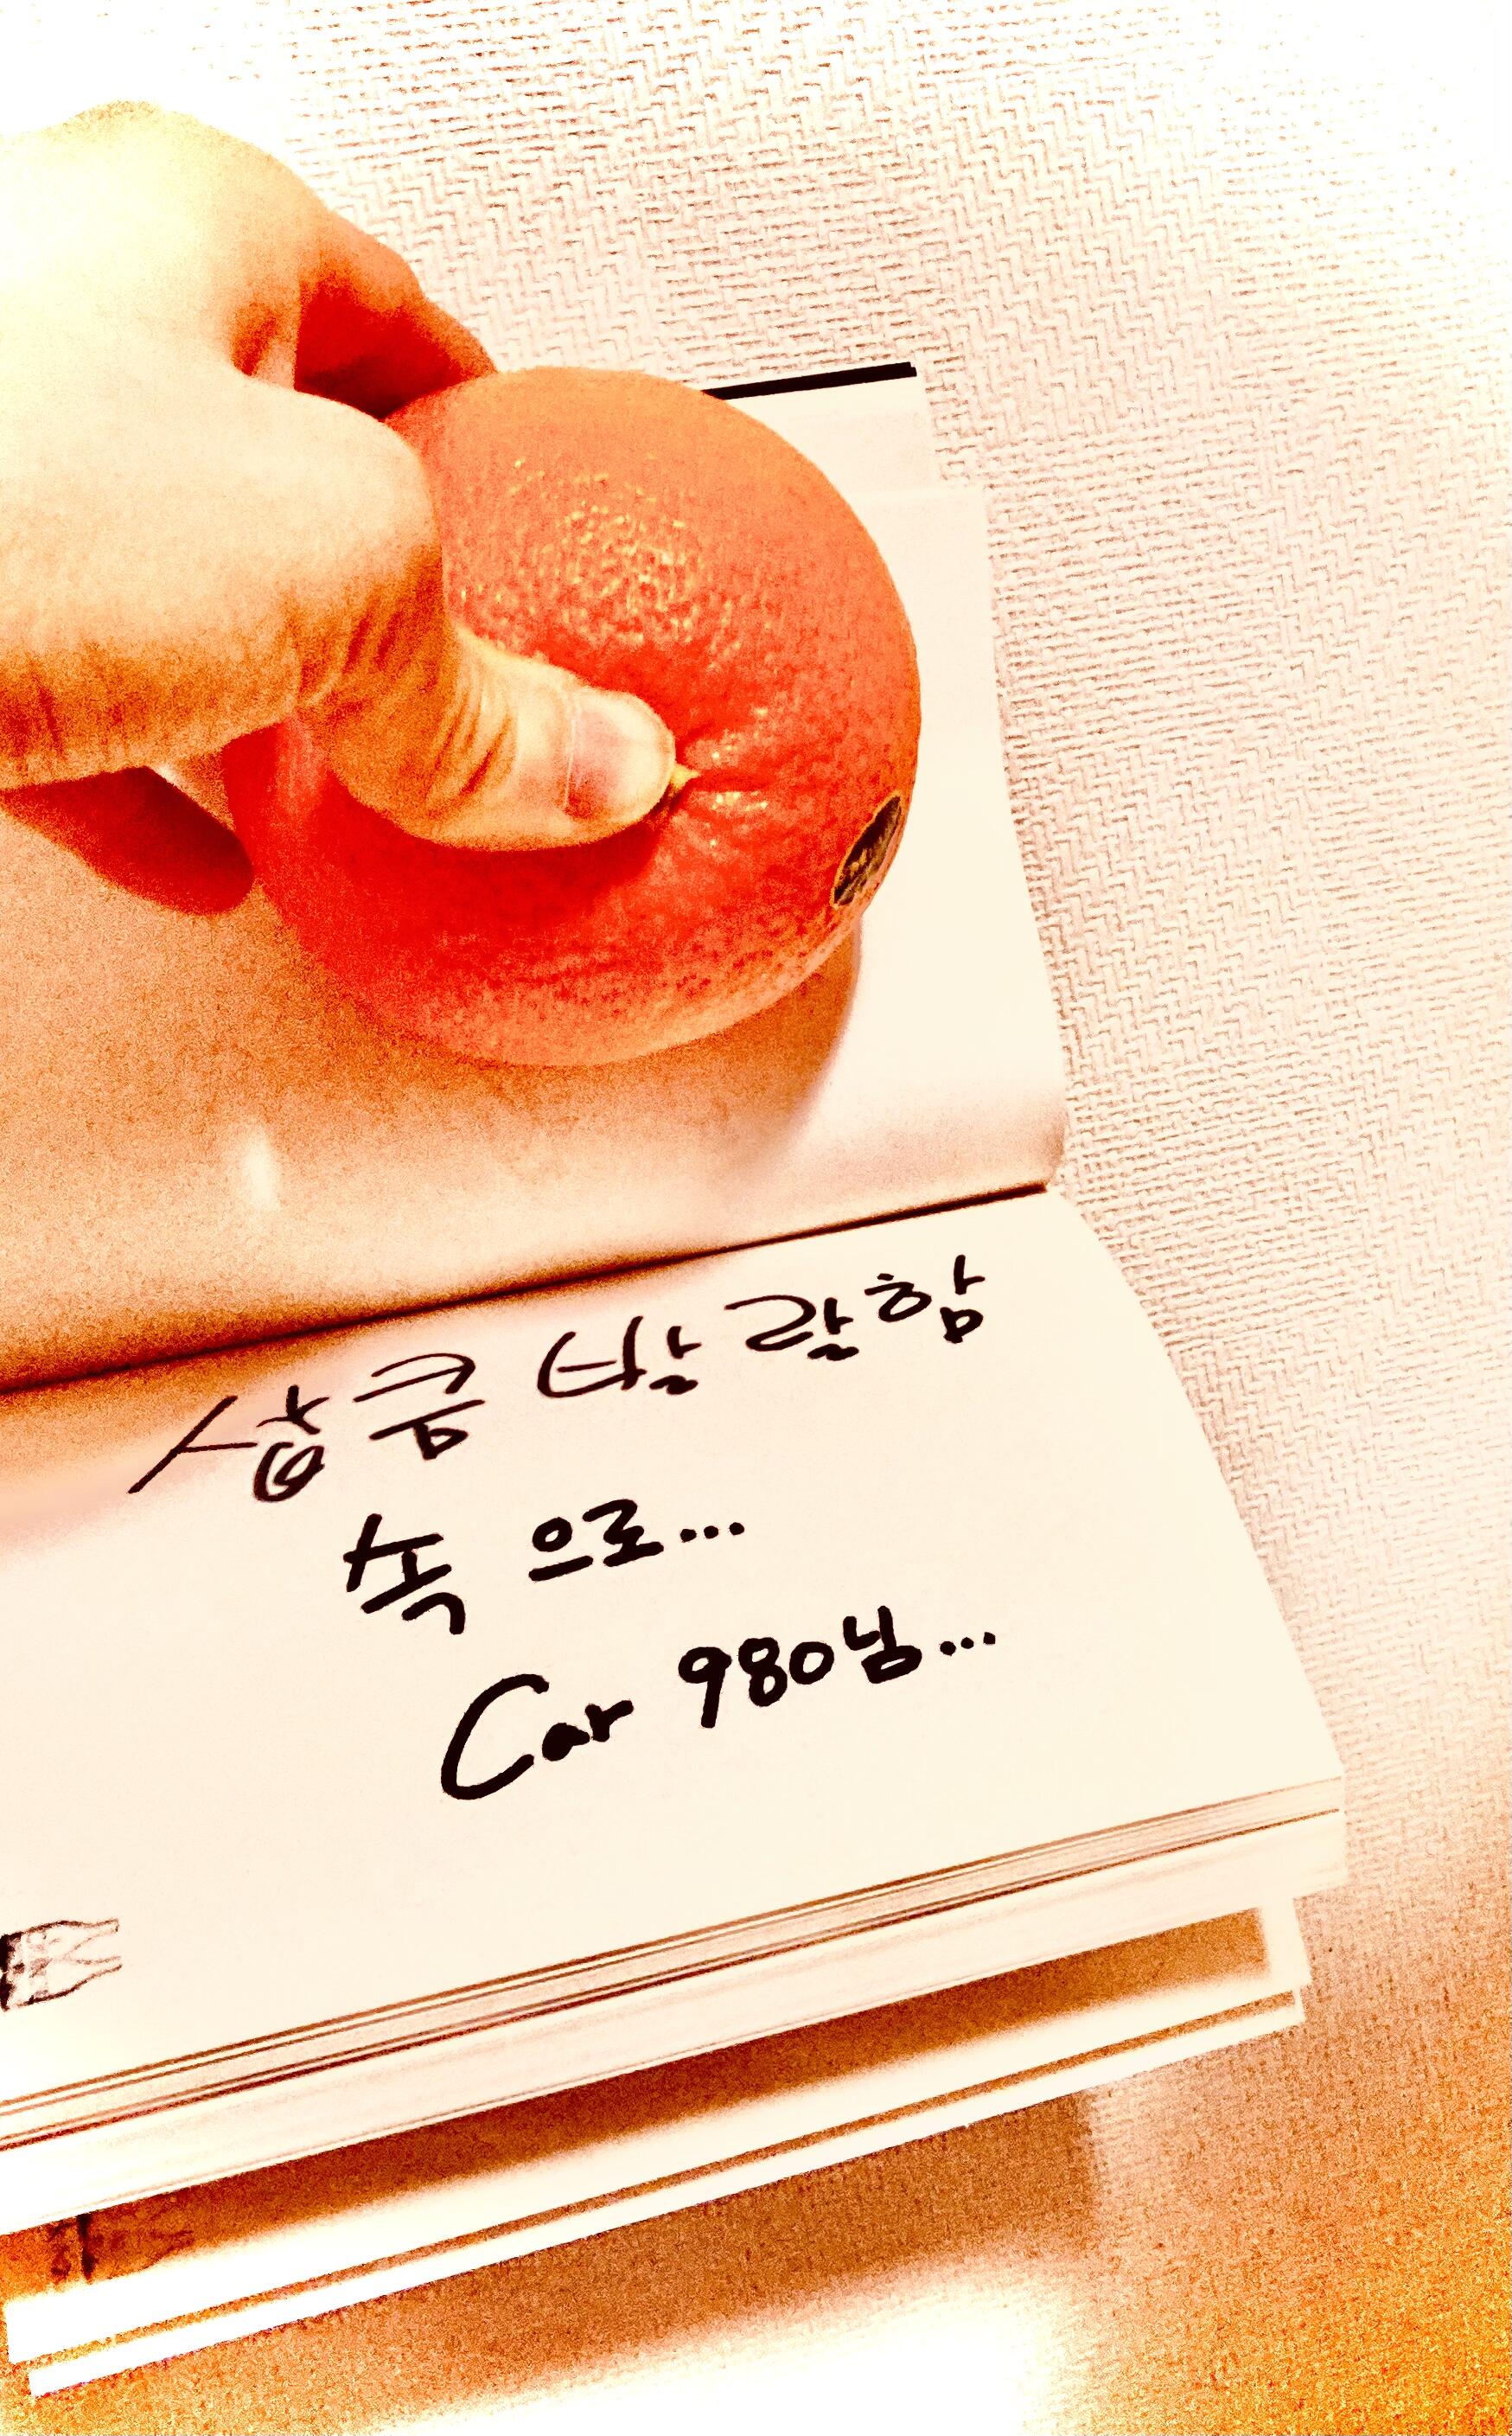 상큼 발랄함
속 으로...
Car 980님...